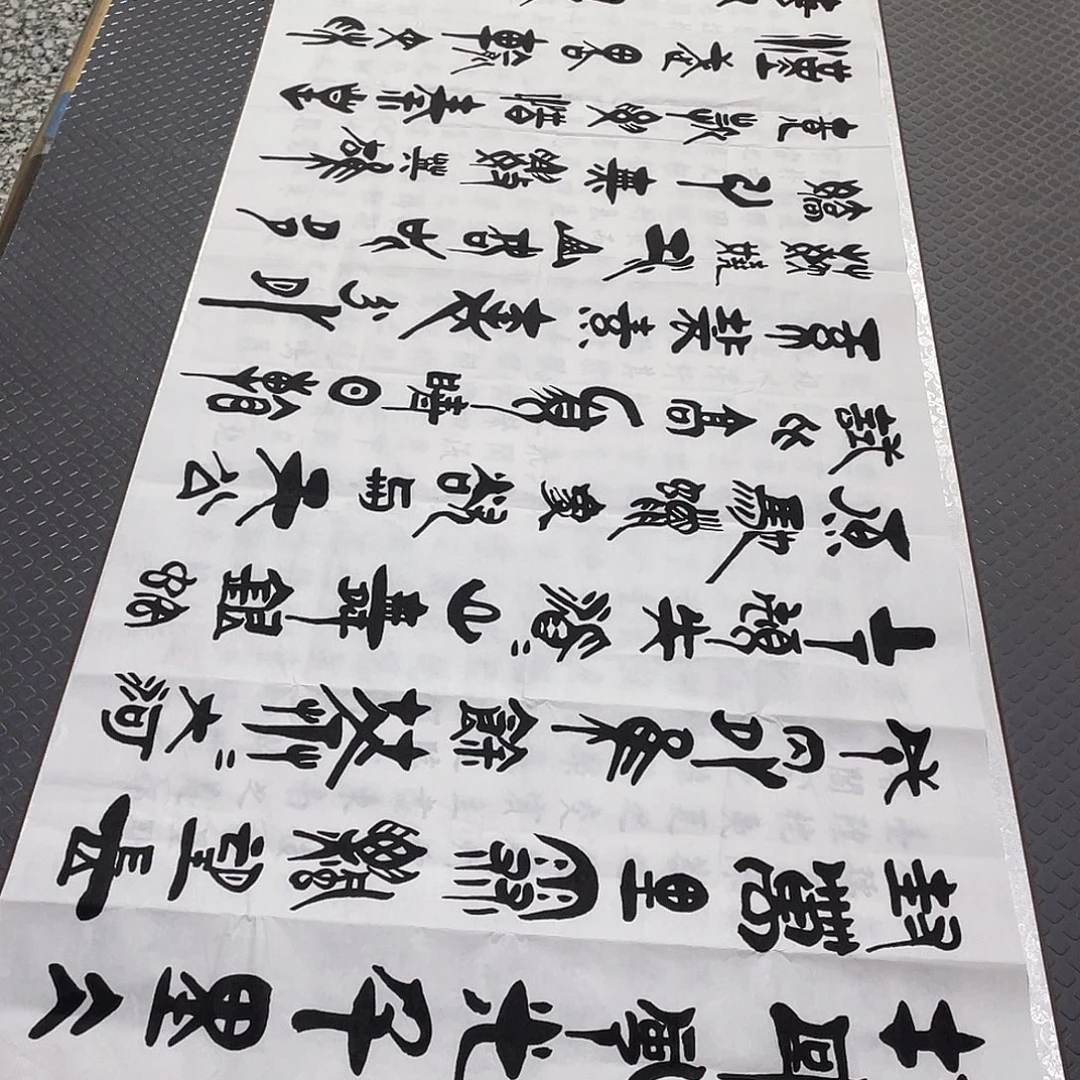 北國風光千里冰
封萬里雪飄望長
城内外惟餘莽莽大河
上下頓失滔滔山舞銀蛇
原馳蠟象欲與天公
試比高須晴日看
紅裝素裹分外
妖嬈江山如此多
嬌引無數英雄
競折腰惜秦皇
漢武略輸文采